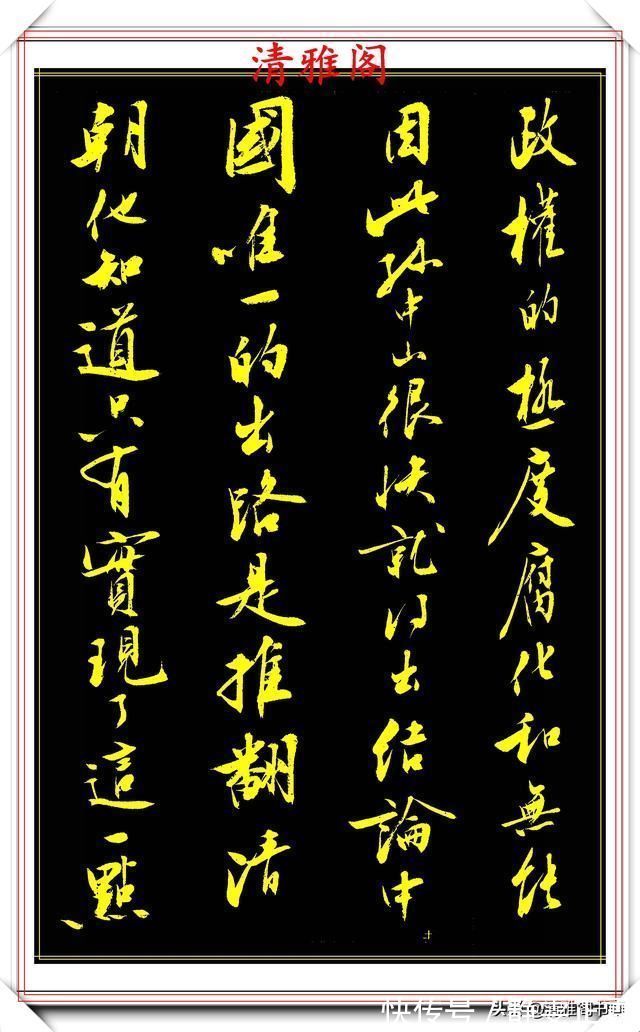 清雅阁
政權的極度腐化和無能
因此孫中山很快就得出結論中
國唯一的出路是推翻清
朝他知道只有實現了這一點
快传号